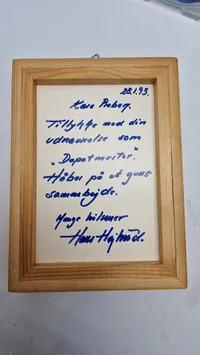 28.1.93.
Kære
Tillykke med din
udnævnelse som
„Depotmester".
Håber på et godt
samarbejde.
Mange hilsner
Hans